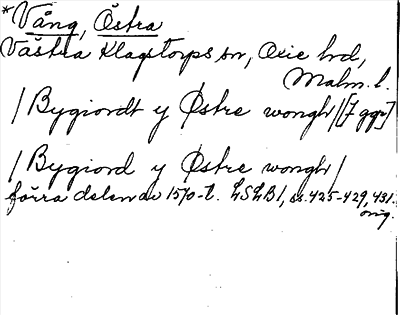 *Vång, Östra
Västra Klagstorps sn, Oxie hd,
Malm. l.
/Bygiordt y Østre wongh/[7 ggr]
/Bygiord y Østre wongh/
förra delen av 1570-t. LSLB1, ss. 425-429, 431.
orig.